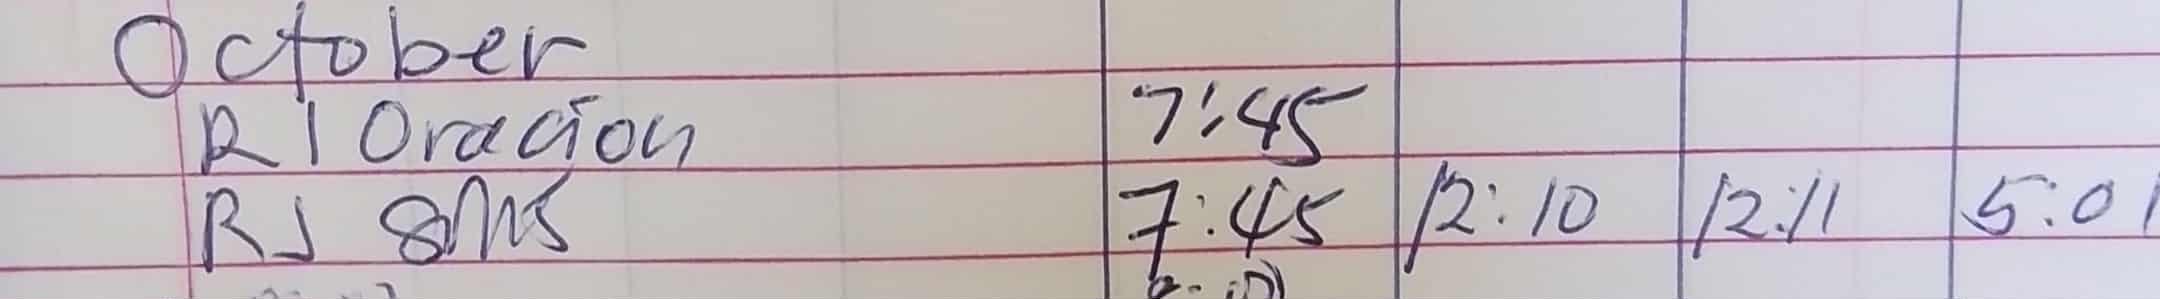 October
RJ Oracion 7:45
RJ 7:45 12:10 12:11 5:01